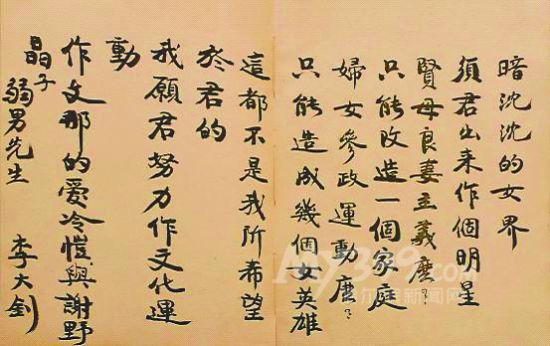 暗沈沈的女界
須君出来作個明星
賢母良妻主義麽？
只能改造一個家庭
婦女參政運動麽？
只能造成幾個女英雄
這都不是我所希望
於君的
我願君努力作文化運
動
作文那的爱冷愷與謝野
晶子
弱男先生
李大釗